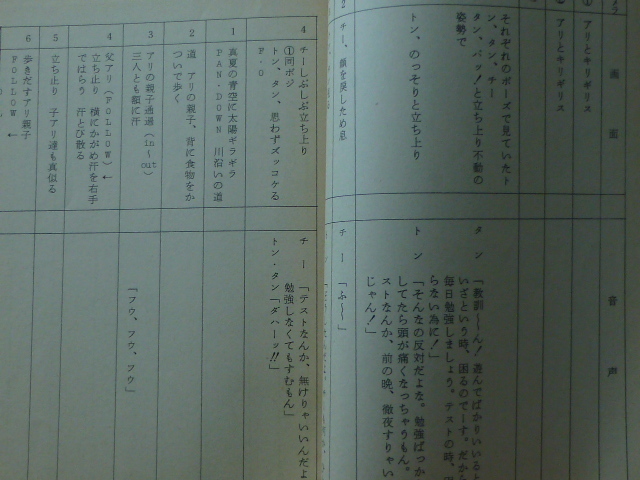 画面
音声
アリとキリギリス
①
アリとキリギリス
それぞれのポーズで見ていたト
ン、タン、チー
タン、パッ!と立ち上り不動の
姿勢で
トン、のっそりと立ち上り
2
タン
「教訓〜ん!遊んでばかりいると
いざという時、困るのでーす。だから
毎日勉強しましょう。テストの時、
らない為に!」
トン
「そんなの反対だよな。勉強ばっか
してたら頭が痛くなっちゃうもん。
ストなんか、前の晩、徹夜すりゃい
じゃん!」
チー
「ふ〜〜」
4
チーしぶしぶ立ち上り
①同ポジ
トン、タン、思わずズッコケる
F・O
チー
「テストなんか、無けりゃいいんだよ
勉強しなくてもすむもん」
トン・タン「ダハーッ!!」
1
真夏の青空に太陽ギラギラ
PAN・DOWN 川沿いの道
2
道 アリの親子、背に食物をか
ついで歩く
3
アリの親子通過(in〜out)
三人とも額に汗
「フウ、フウ、フウ」
4
父アリ(FOLLOW)←
立ち止り 横にかがめ汗を右手
ではらう 汗とび散る
5
立ち止り 子アリ達も真似る
6
歩きだすアリ親子
FOLLOW ←